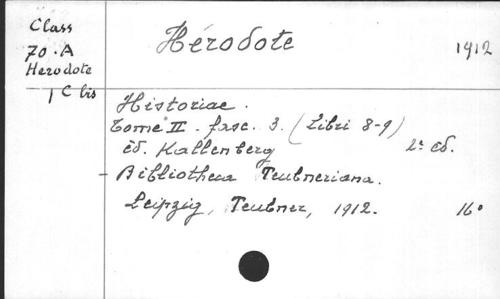 Class
70.A
Herodote
1 C bis
Hérodote 1912
Historiae.
Tome II. fasc. 3. (Libri 8-9)
éd. Kallenberg 2e éd.
- Bibliotheca Teubneriana.
Leipzig, Teubner, 1912. 16°